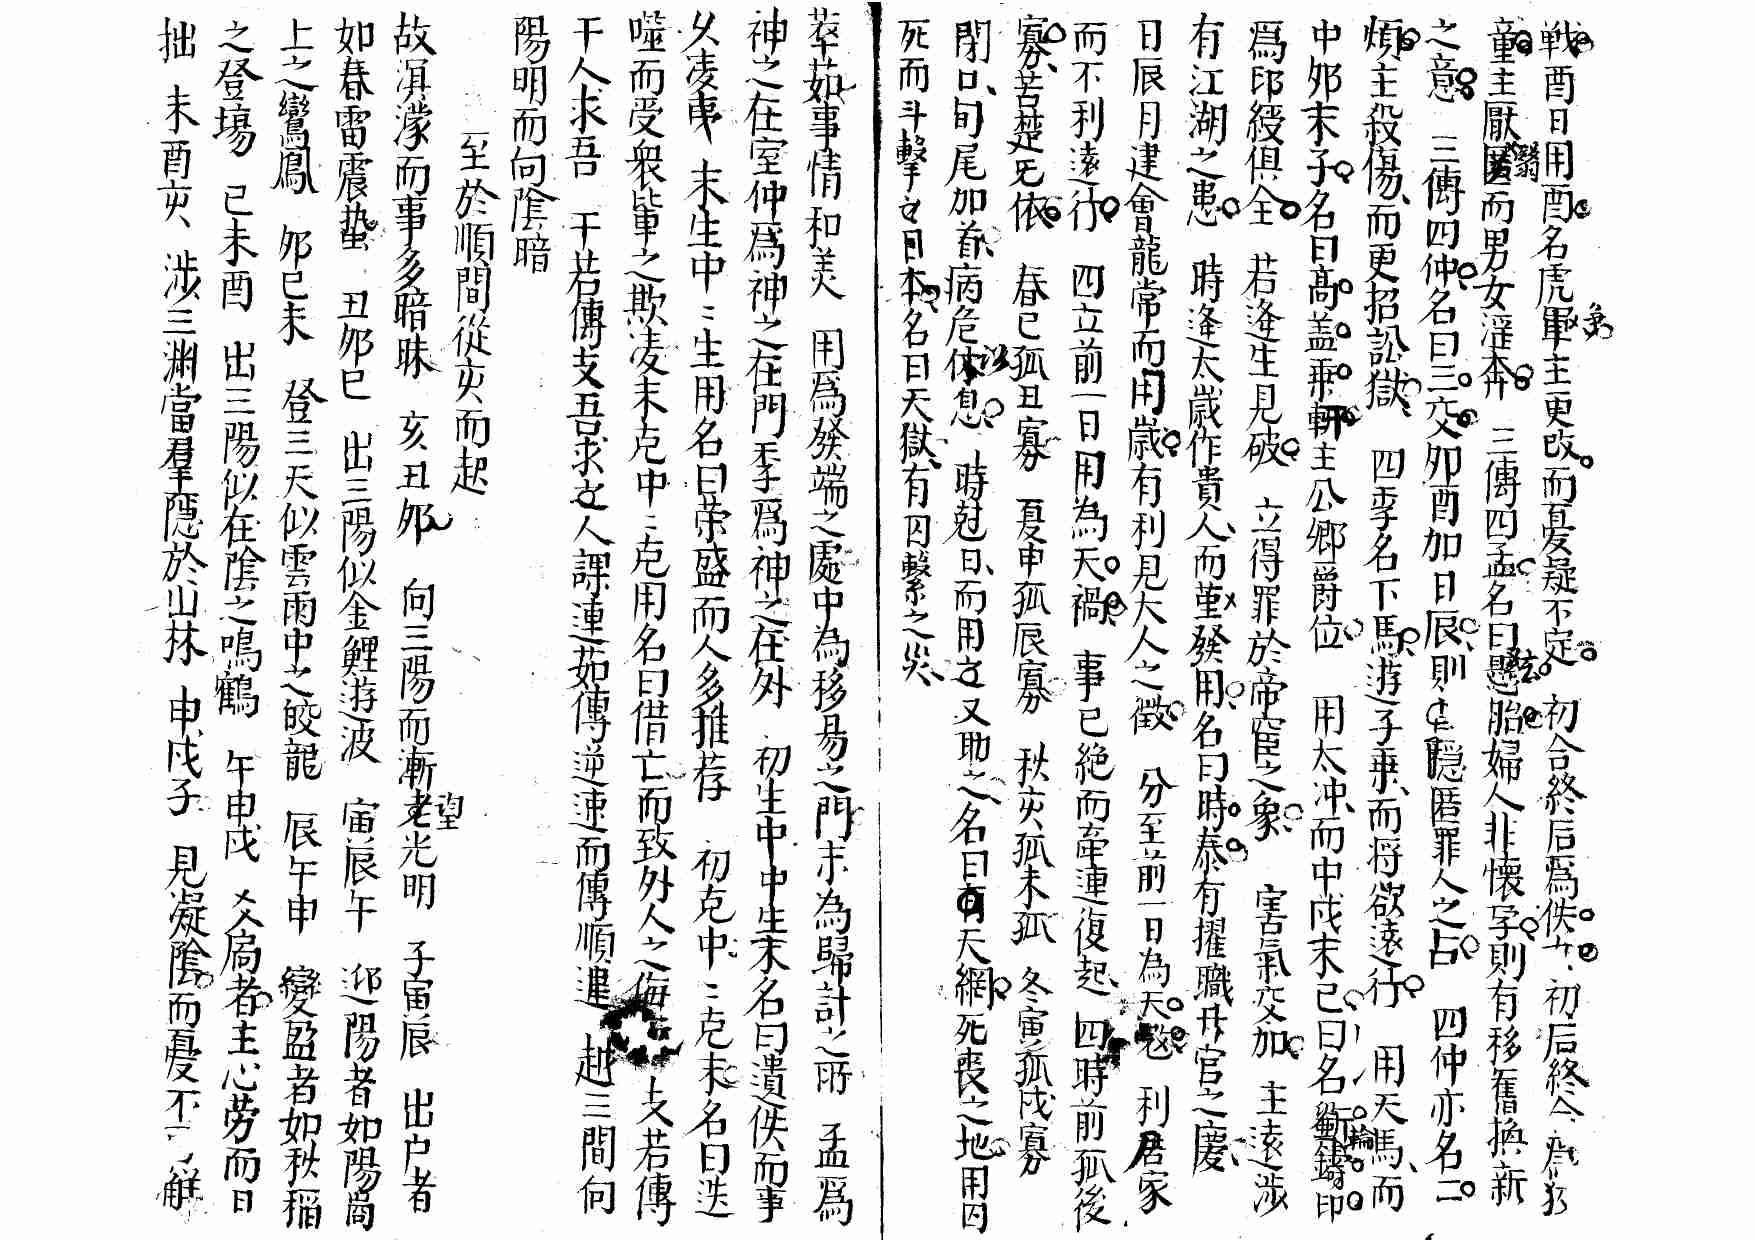 戰酉日用酉名虎軍主更改而憂疑不定 初合終后爲佚女初后終合爲狡
童主厭翳匿而男女淫奔 三傳四孟名曰懸胎婦人非懷孕則有移舊換新
之意 三傳四仲名曰三交夘酉加日辰則主隱匿罪人之占 四仲亦名二
煩主殺傷而更招訟獄 四季名下馬遊子乗而将欲遠行 用天馬而
中夘末子名曰髙盖乗軒主公卿爵位 用太冲而中戌末巳曰名斵輪鑄印
爲印綬俱全 若逢生見破 立得罪於帝宦之象 害氣交加 主遠涉
有江湖之患 時逢太歲作貴人而堇發用名曰時泰有擢職升官之慶
日辰月建會龍常而用歲有利見大人之徴 分至前一日為天㓂 利居家
而不利遠行 四立前一日用為天禍 事已絶而牽連復起 四時前孤後
寡苦楚旡依 春巳孤丑寡 夏申孤辰寡 秋亥孤未孤 冬寅孤戌寡
閉口旬尾加首病危休息 時尅日而用又助之名曰天網死丧之地用囚
死而斗擊日本名曰天獄有囚繫之災
茹事情和美 用爲發端之處中為移易之門末為歸計之所 孟爲
神之在室仲爲神之在門季爲神之在外 初生中中生末名曰遺佚而事
久凌夷 末生中〻生用名曰荣盛而人多推荐 初克中〻克末名曰迭
噬而受衆軰之欺凌末克中〻克用名曰借亡而致外人之侮 支若傳
干人求吾 干若傳支吾求人課連茹傳逆速而傳順遲 越三間向
陽明而向隂暗
至於順間從亥而起
故溟濛而事多暗昧 亥丑夘 向三陽而漸望光明 子寅辰 出户者
如春雷震蟄 丑夘巳 出三陽似金鯉遊波 寅辰午 迎陽者如陽崗
上之鸞鳳 夘巳未 登三天似雲雨中之蛟龍 辰午申 變盈者如秋稲
之登塲 巳未酉 出三陽似在隂之鳴鶴 午申戌 爻扄者主心劳而日
拙 未酉亥 涉三渊當羣隱於山林 申戌子 見凝隂而憂不解